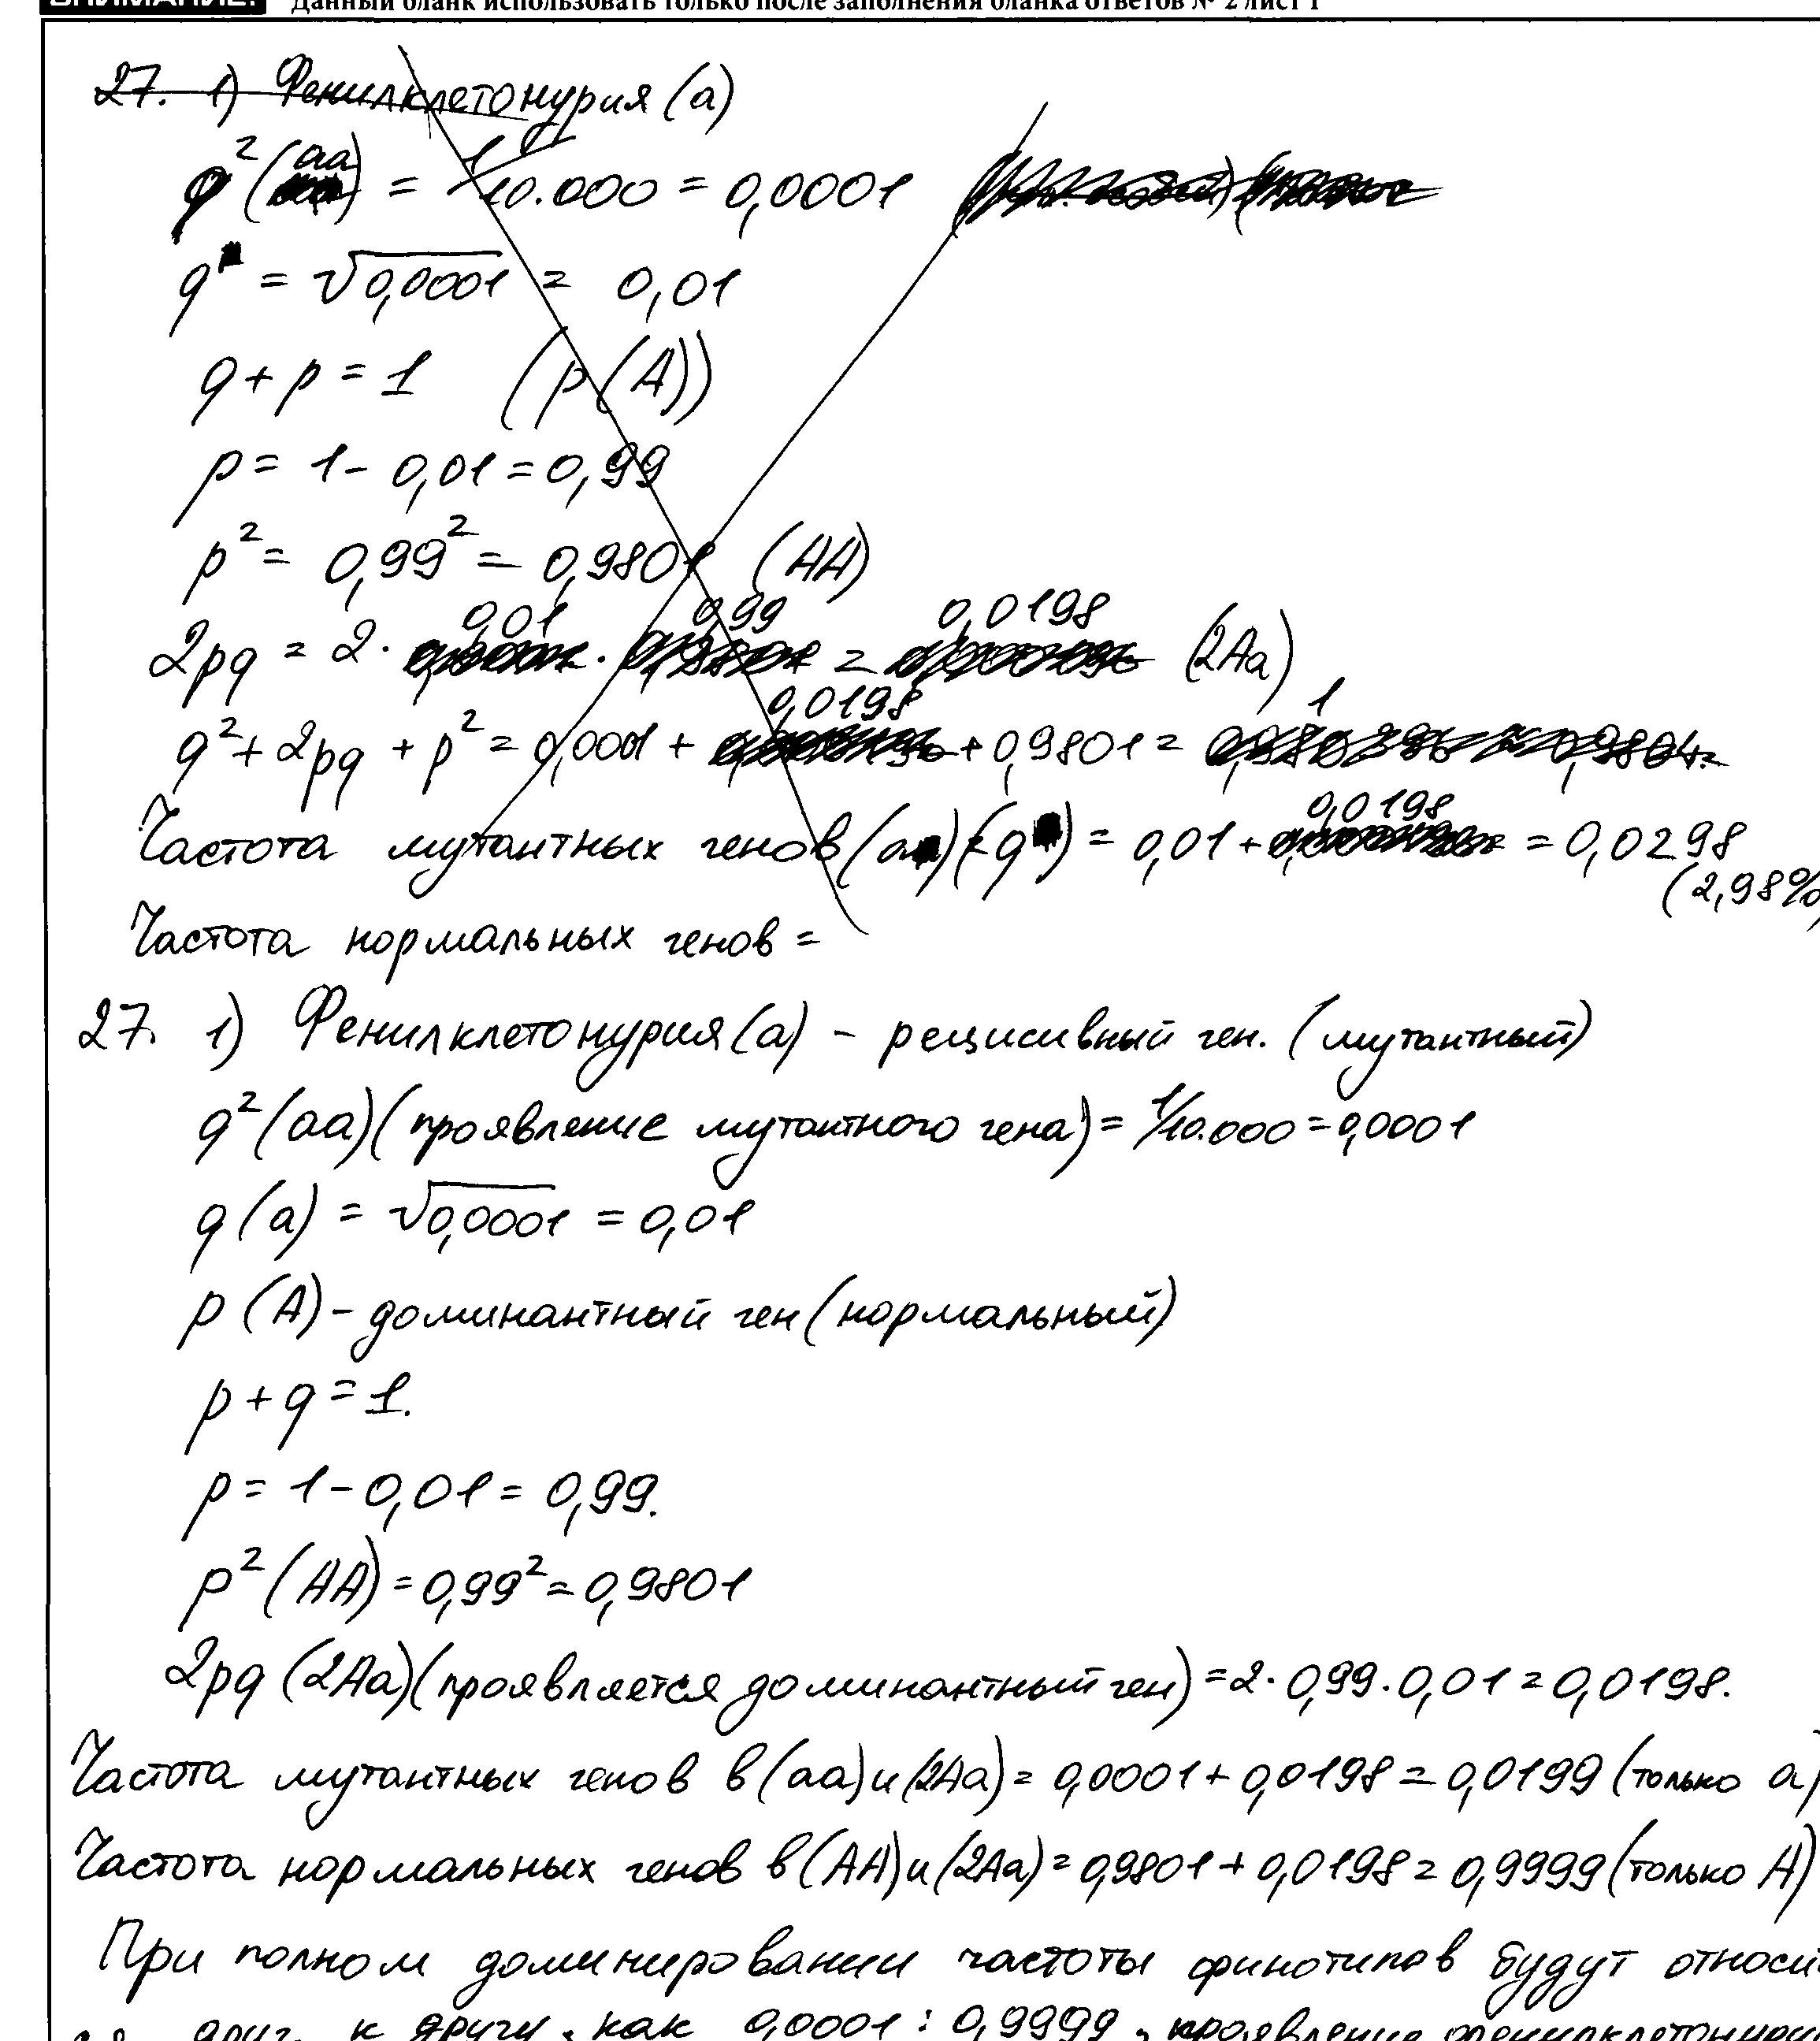 ВНИМАНИЕ! Данный бланк использовать только после заполнения бланка ответов № 2 лист 1
27. 1) Фенилклетонурия (а)
q² (aa) = 1/10.000 = 0,0001
q = √0,0001 = 0,01
q + p = 1 (p(A))
p = 1 - 0,01 = 0,99
p² = 0,99² = 0,9801 (AA)
2pq = 2 · 0,01 · 0,99 = 0,0198 (2Aa)
q² + 2pq + p² = 0,0001 + 0,0198 + 0,9801 = 1
Частота мутантных генов (а) (q) = 0,01 + 0,0198 = 0,0298
(2,98%)
Частота нормальных генов =
27. 1) Фенилклетонурия (а) - рецисивный ген. (мутантный)
q² (aa) (проявление мутантного гена) = 1/10.000 = 0,0001
q (a) = √0,0001 = 0,01
p (A) - доминантный ген (нормальный)
p + q = 1.
p = 1 - 0,01 = 0,99.
p² (AA) = 0,99² = 0,9801
2pq (2Aa) (проявляется доминантный ген) = 2 · 0,99 · 0,01 = 0,0198.
Частота мутантных генов в (aa) и (2Aa) = 0,0001 + 0,0198 = 0,0199 (только а)
Частота нормальных генов в (AA) и (2Aa) = 0,9801 + 0,0198 = 0,9999 (только А)
При полном доминировании частоты финотипов будут относи
друг к другу, как 0,0001 : 0,9999, проявление